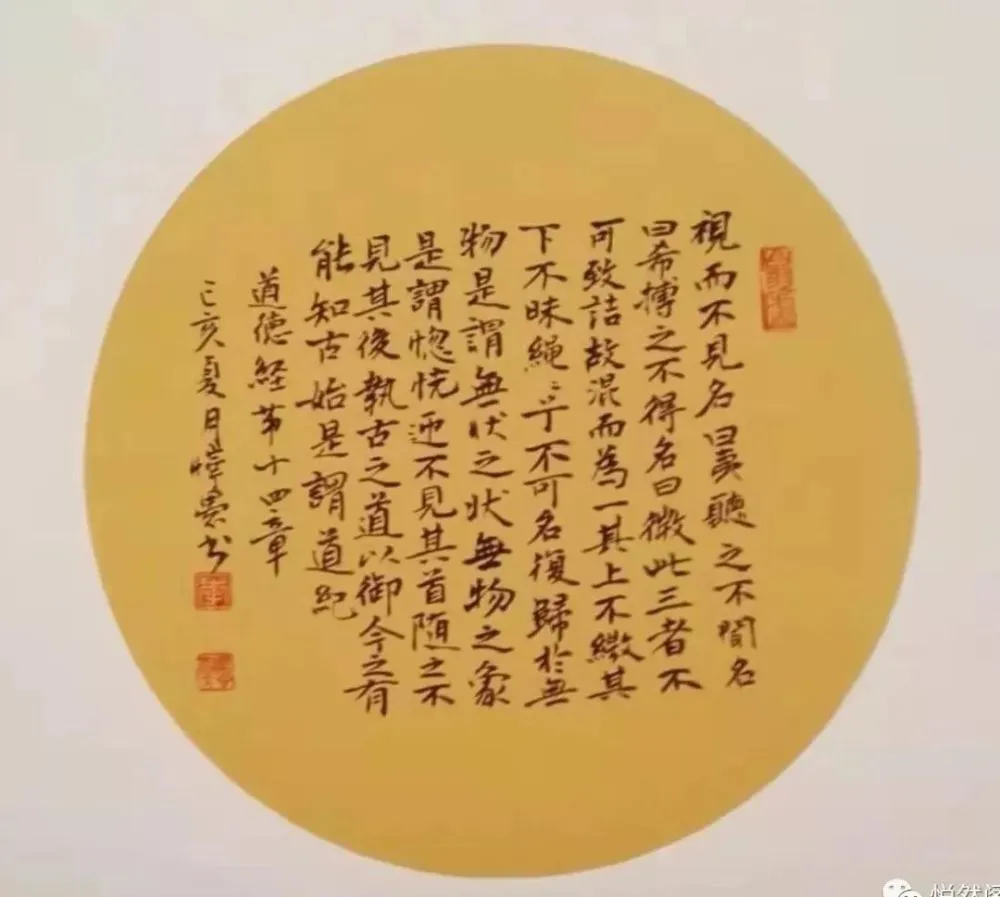 視而不見名曰夷聽之不聞名
曰希搏之不得名曰微此三者不
可致詰故混而為一其上不繳其
下不昧繩〻乎不可名復歸於無
物是謂無狀之状無物之象
是謂惚恍迎不見其首随之不
見其後執古之道以御今之有
能知古始是謂道紀
道德経第十四章
己亥夏月书
悦然阁